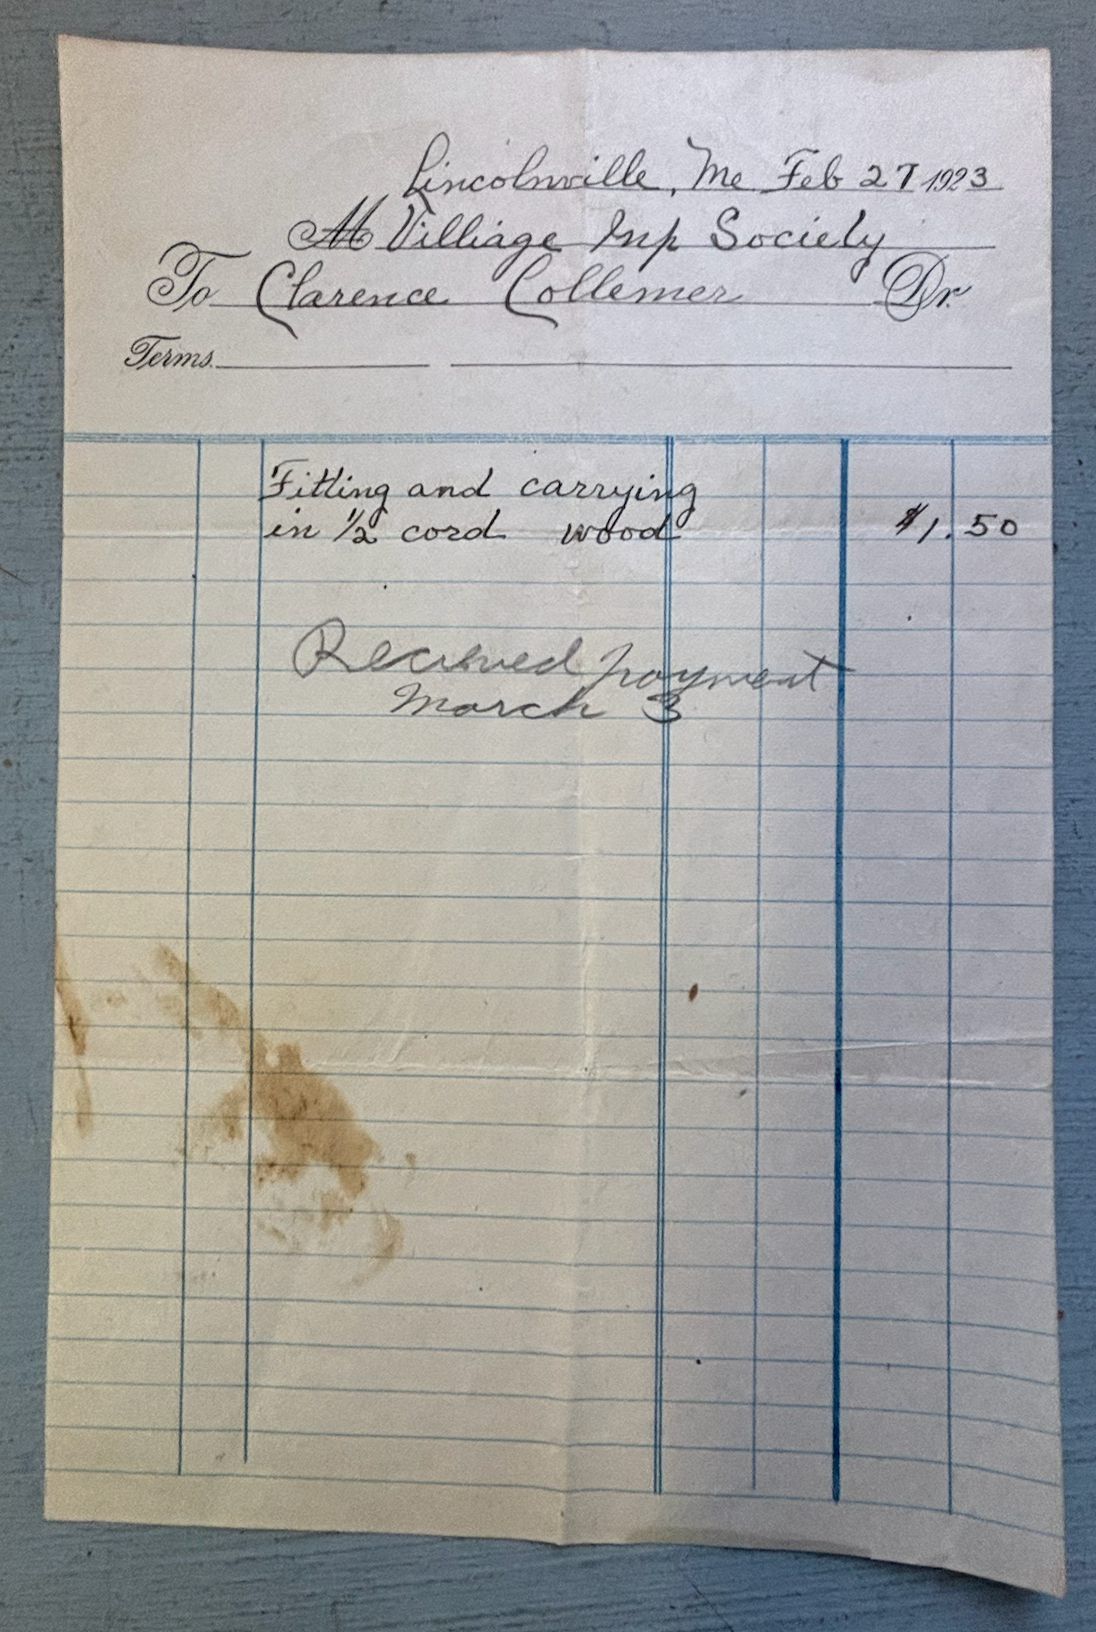 Lincolnville, Me Feb 27 1923
M Villiage Imp Society
To Clarence Collemer Dr.
Terms
Fitting and carrying
in 1/2 cord wood $1.50
Received payment
March 3